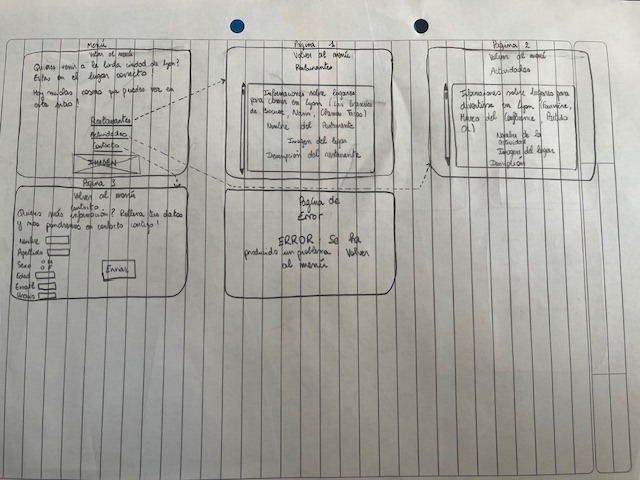 Menú
Volver al menú
Quieres venir a la linda ciudad de Lyon?
Estas en el lugar correcto!
Hay muchas cosas que puedes ver en
este sitio!
Restaurantes
Actividades
Contacto
IMAGEN
Página 1
Volver al menú
Restaurantes
Informaciones sobre lugares
para comer en Lyon (Las
de Bocuse, Ninin, Chamas Tacos)
Nombre del Restaurante
Imagen del lugar
Descripción del restaurante
Página 2
Volver al menú
Actividades
Informaciones sobre lugares para
divertirse en Lyon (Fourvière,
Museo del Confluence, Partido
OL)
Nombre de la
actividad
Imagen del lugar
Descripción
Página 3
Volver al menú
Contacto
Quieres más información? Rellena tus datos
y nos pondremos en contacto contigo!
Nombre
Apellido
Sexo
Edad
Email
Enviar
Página de
Error
ERROR: Se ha
producido un problema Volver
al menú